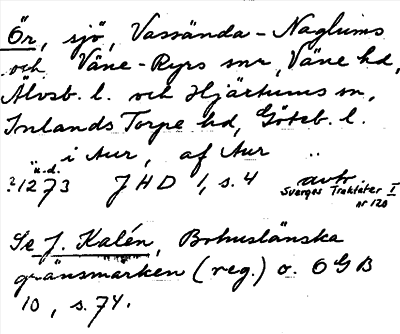 Ör, sjö, Vassända-Naglums
och Väne-Ryrs snr, Väne hd,
Älvsb. l. och Hjärtums sn,
Inlands Torpe hd, Göteb. l.
i Aur, af Aur ..
u.d.
?1273 JHD 1, s. 4 avtr.
Sveriges Traktater I
nr 120
Se J. Kalén, Bohuslänska
gränsmärken (reg.) o. OGB
10, s. 74.